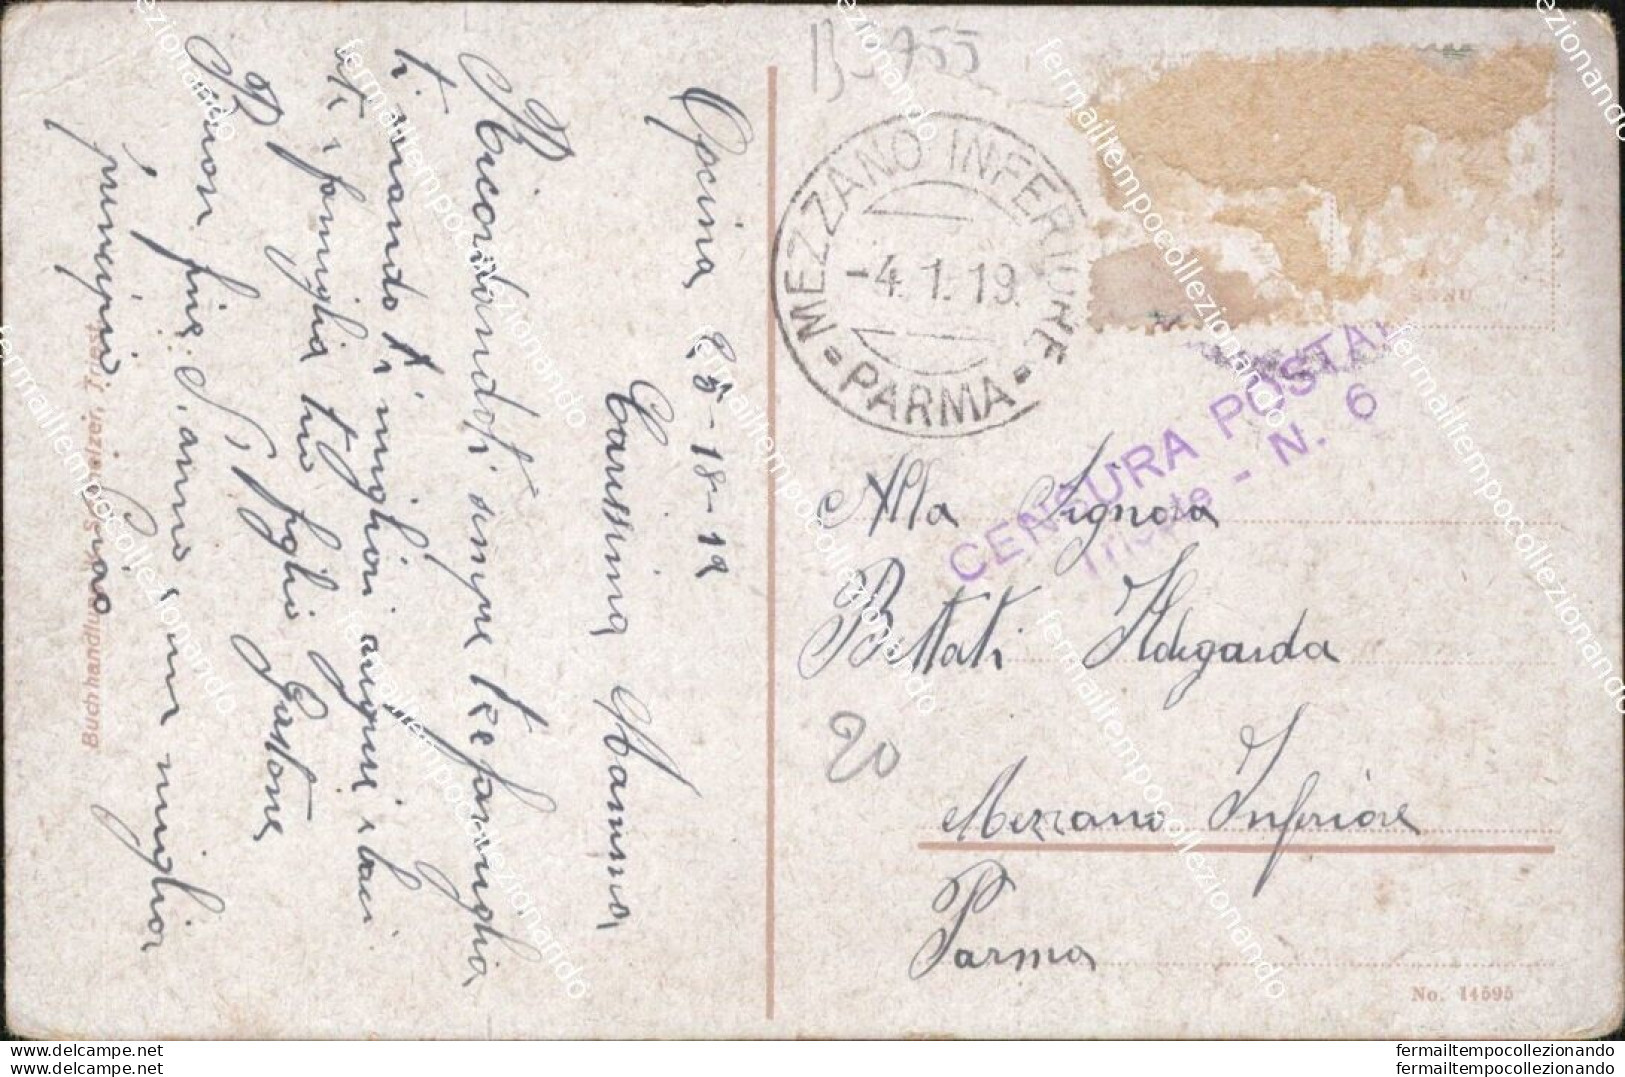 Opcina 25-18-19
Carissima Mamma
Ricordandoti sempre te famiglia
ti mando ti migliori auguri i baci
a te i famiglia tuo figlio Gastone
Buon fine d'anno i un miglior
principio Ciao
Buchhandlung Schmelzer, Triest
B-755
MEZZANO INFERIORE
-4.1.19.
PARMA
CENSURA POSTAL
Trieste - N. 6
Alla Signora
Bettati Ildegarda
20
Mezzano Inferiore
Parma
No. 14595
fermailtempocollezionando
www.delcampe.net
fermailtempocollezionando
www.delcampe.net
fermailtempocollezionando